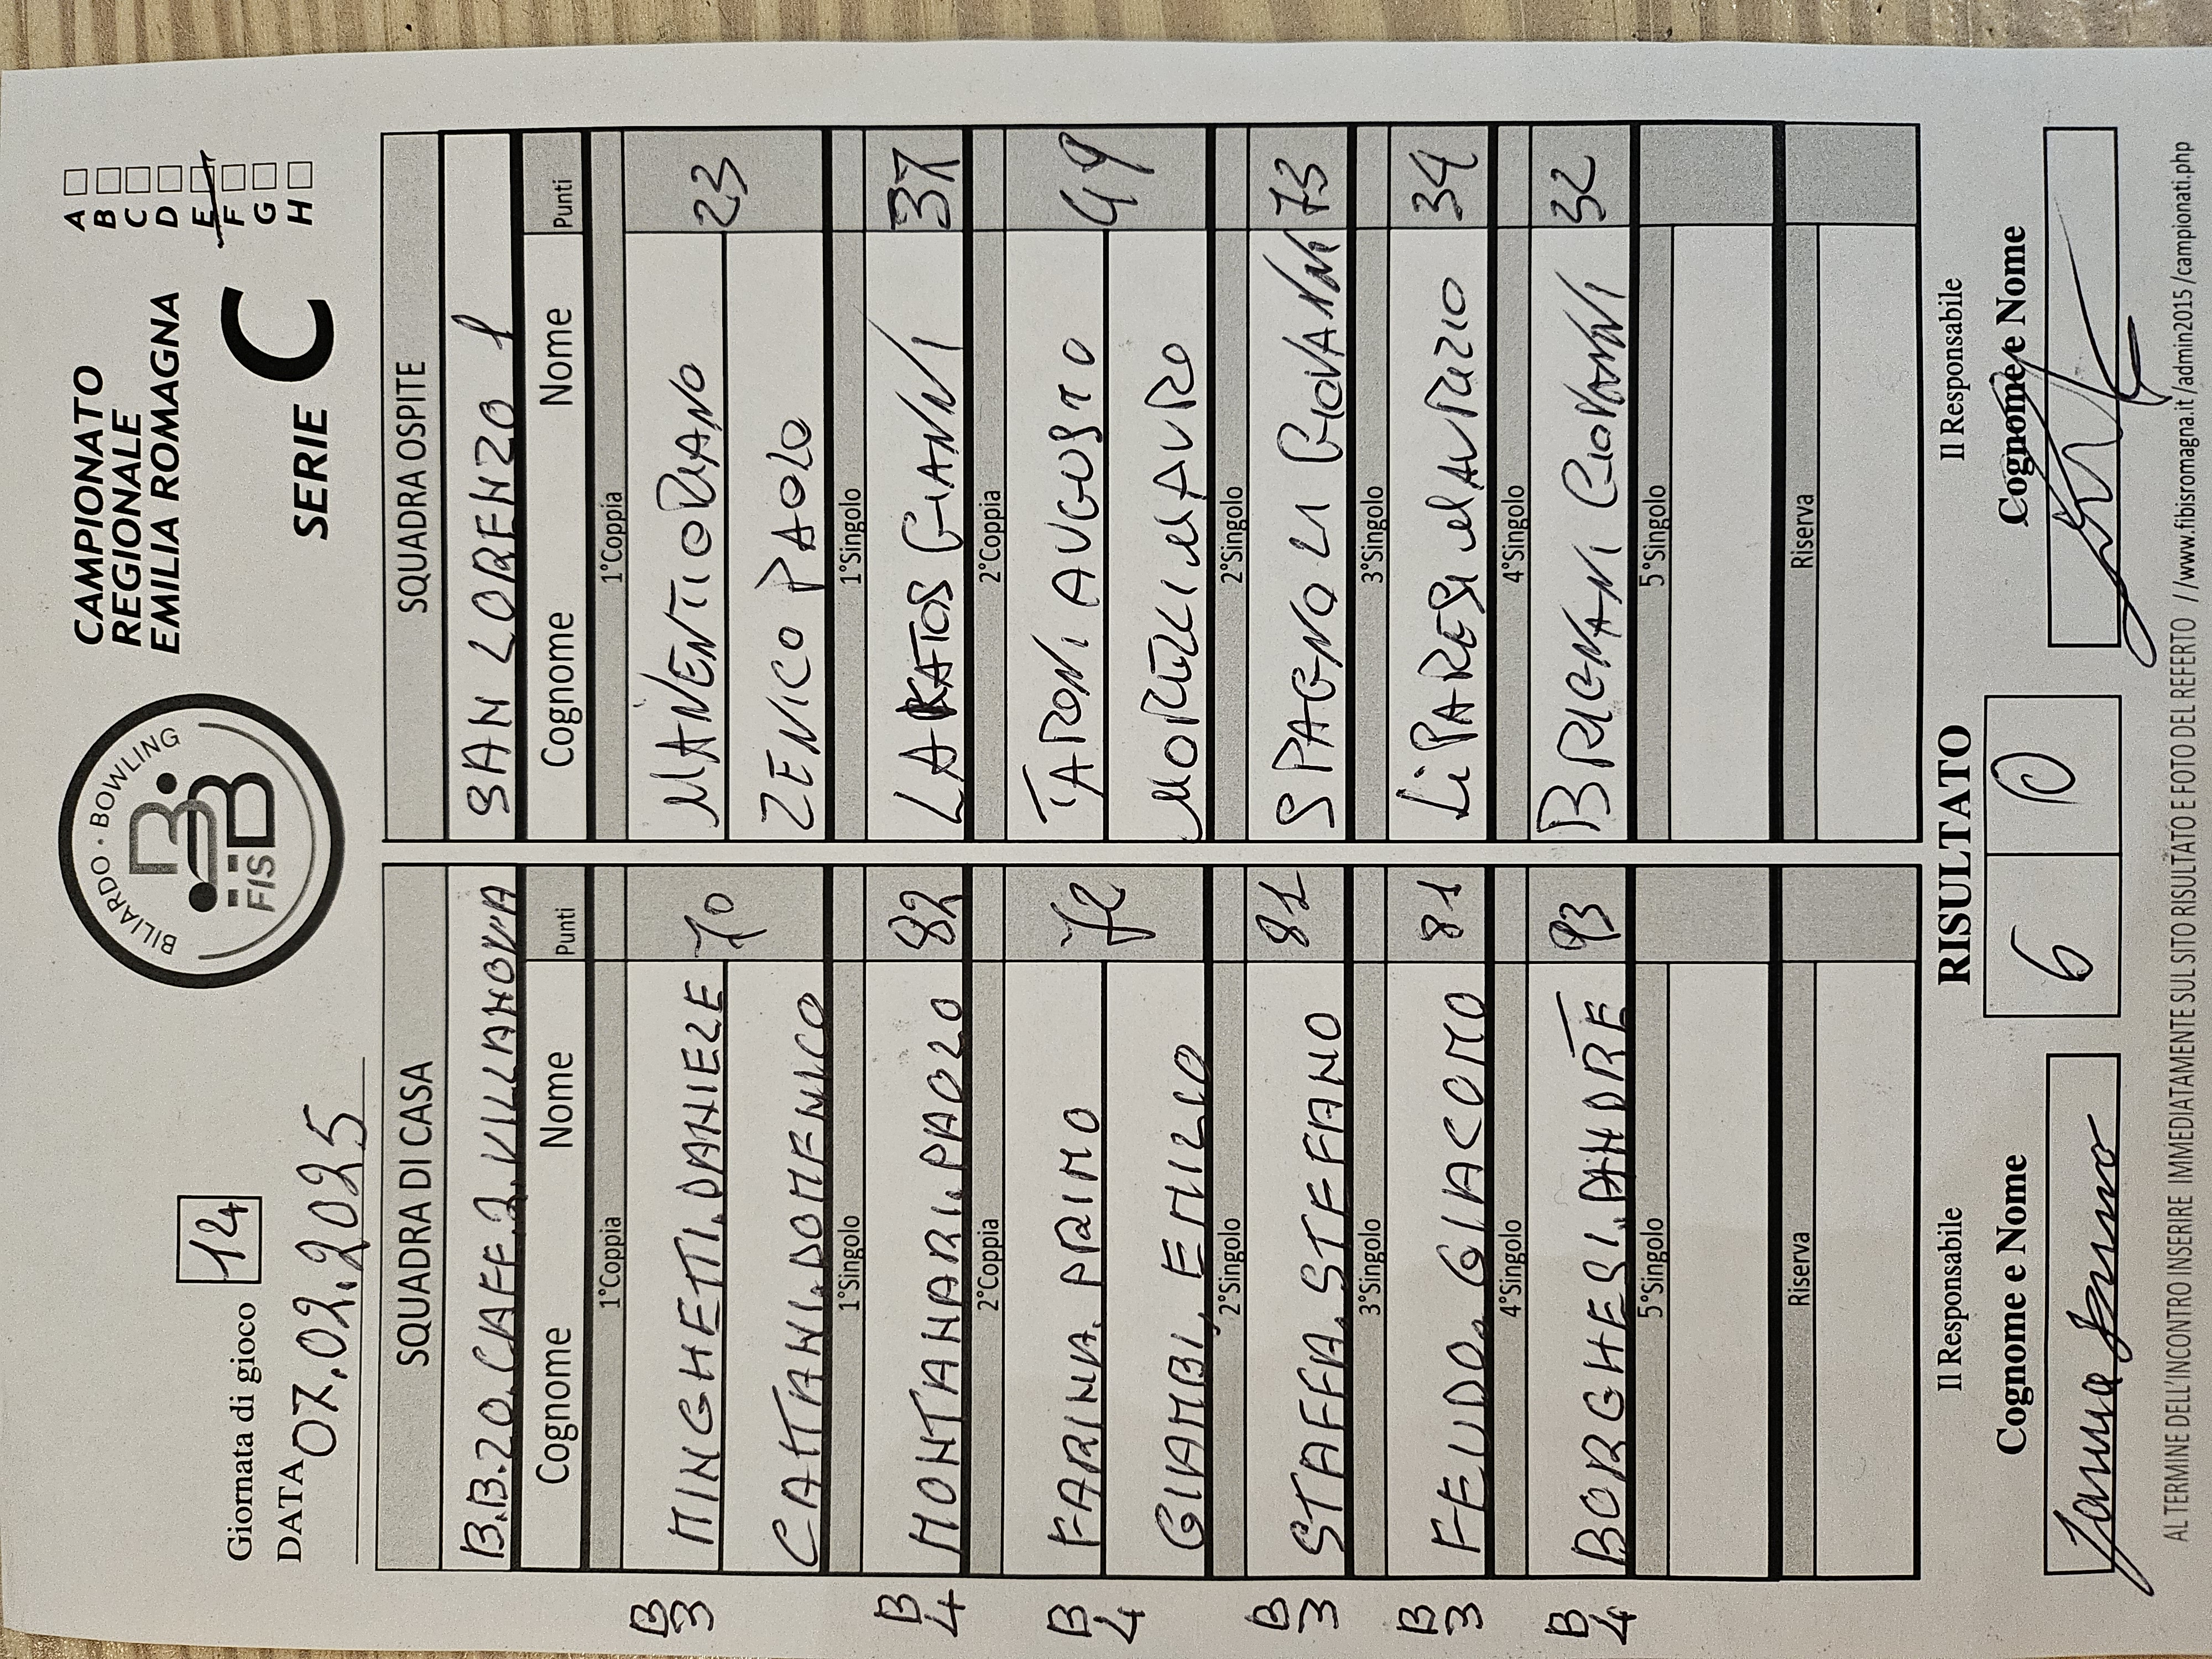 Giornata di gioco 14
DATA 07.02.2025
BILIARDO · BOWLING
FISBB
CAMPIONATO
REGIONALE
EMILIA ROMAGNA
SERIE C
A
B
C
D
E
F
G
H
SQUADRA DI CASA SQUADRA OSPITE
B.B.20.CAFE.2.VILLANOVA SAN LORENZO 1
Cognome Nome Punti Cognome Nome Punti
1°Coppia 1°Coppia
B 3 MINGHETTI.DANIELE 70 MANENTI ORIANO 23
CATTANI.DOMENICO ZENICO PAOLO
1°Singolo 1°Singolo
B 4 MONTANARI.PAOLO 82 LAKATOS GIANNI 37
2°Coppia 2°Coppia
B 4 FARINA.PRIMO TARONI AUGUSTO
GIAMBI, EMILIO MORELLI MAURO
2°Singolo 2°Singolo
B 3 STAFFA.STEFANO 81 SPAGNOLI GIOVANNI 73
3°Singolo 3°Singolo
B 3 FEUDO.GIACOMO 81 LiPARESI MAURIZIO 34
4°Singolo 4°Singolo
B 4 BORGHESI.ANDRE 93 BRIGNANI GIOVANNI 32
5°Singolo 5°Singolo
Riserva Riserva
Il Responsabile RISULTATO Il Responsabile
Cognome e Nome 6 0 Cognome e Nome
AL TERMINE DELL'INCONTRO INSERIRE IMMEDIATAMENTE SUL SITO RISULTATO E FOTO DEL REFERTO //www.fibisromagna.it/admin2015/campionati.php